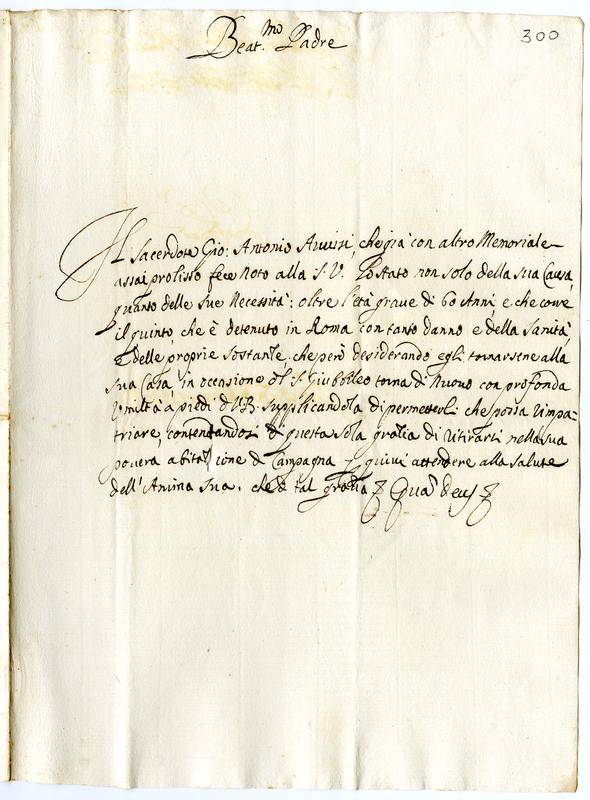 300
Beat.mo Padre
Il Sacerdote Gio: Antonio che già con altro Memoriale
assai prolisso fece noto alla S.V. lo stato non solo della sua Causa,
quanto delle sue Necessità: oltre l'età graue di 60 Anni, e che corre
il quinto, che è detenuto in Roma con tanto danno, e della Sanità,
e delle proprie sostanze, che però desiderando egli tornarsene alla
sua Casa, in occasione del S. Giubbileo torna di nuouo con profonda
umiltà à piedi d V.B. supplicandola di permetterli che possa rimpa-
triare, contentandosi d questa sola grazia di ritirarsi nella sua
pouera abitazione d Campagna p quiui attendere alla salute
dell'Anima sua. che d tal grazia Qua Deus